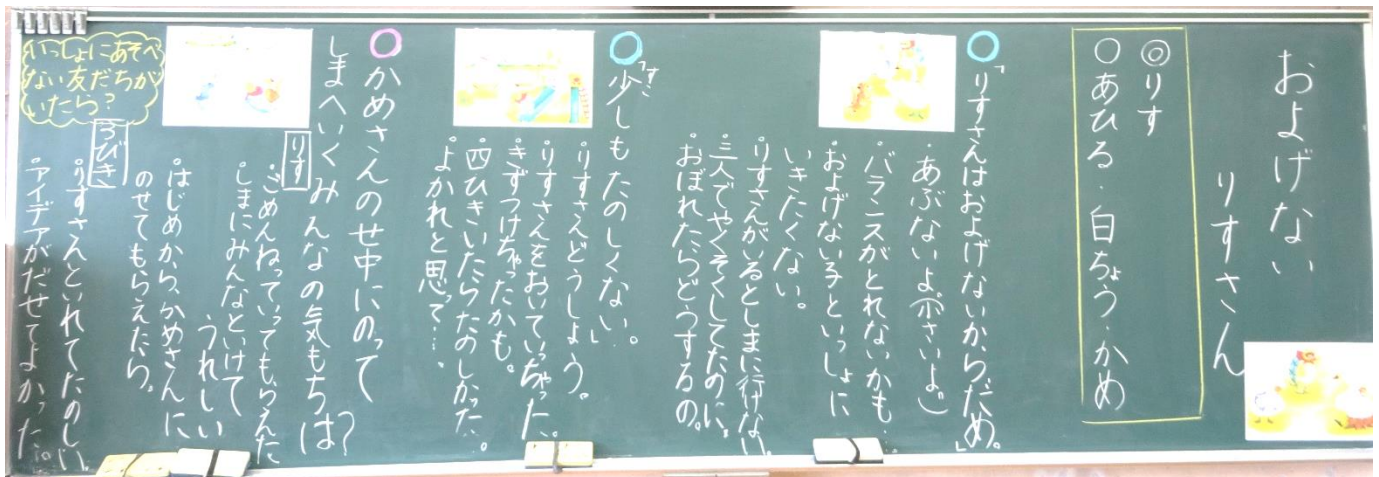 およげない
りすさん
◎りす
○あひる・白ちょう・かめ
○「りすさんはおよげないからだめ。」
・あぶないよ
・バランスがとれないかも
・およげない子といっしょに
いきたくない。
・りすさんがいるとしまに行けない
・三人でやくそくしてたのに。
・おぼれたらどうするの。
○「少しもたのしくない。」
すこ
・りすさんどうしよう。
・りすさんをおいていっちゃった。
・きずつけちゃったかも。
・四ひきいたらたのしかった…。
・よかれと思って…。
○かめさんのせ中にのって
しまへいくみんなの気もちは?
りす
・ごめんねっていってもらえた
・しまにみんなといけて
うれしい
・はじめから、かめさんに
のせてもらえたら。
3びき
・りすさんといれてたのしい。
・アイデアがだせてよかった。
いっしょにあそべ
ない友だちが
いたら?